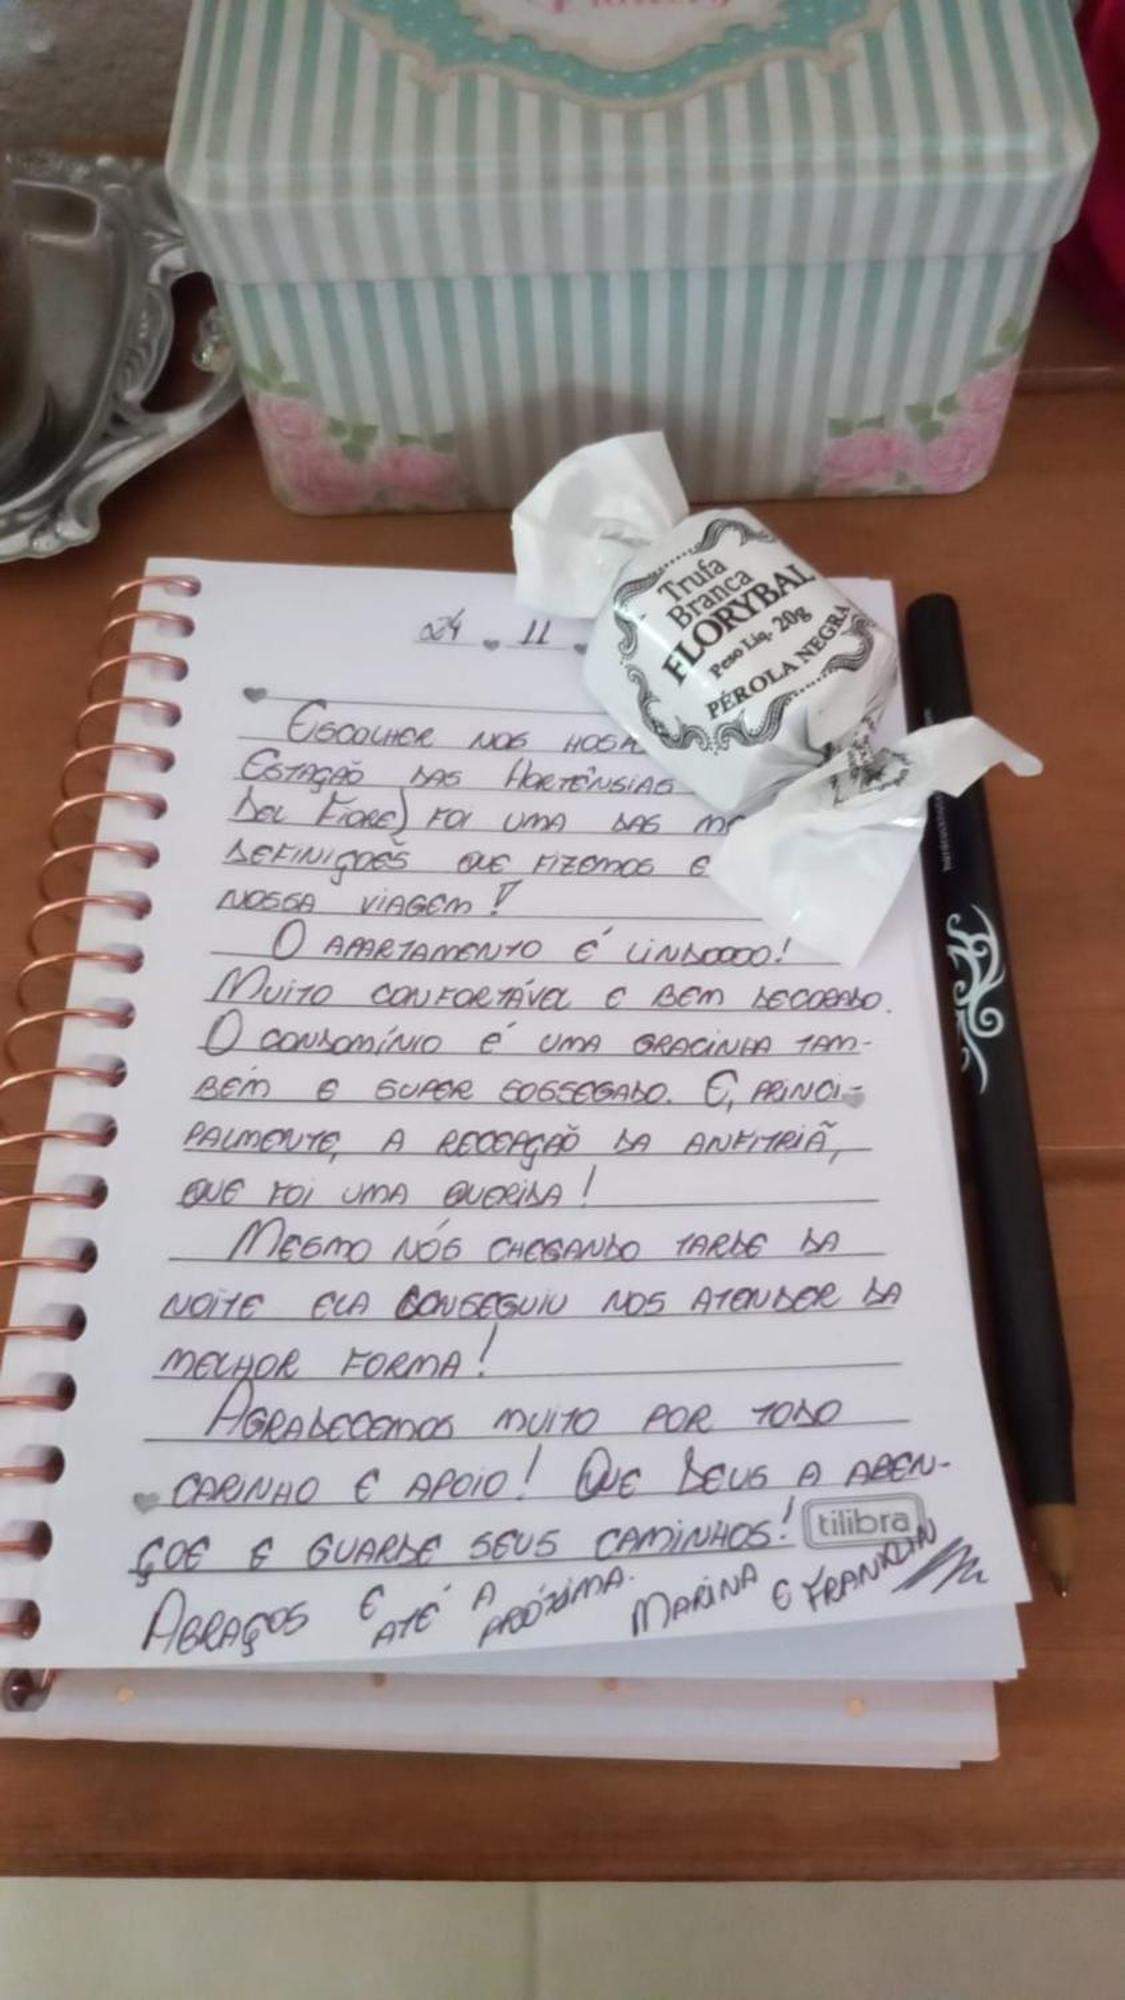 24 11
Trufa
Branca
FLORYBAL
Peso Liq. 20g
PÉROLA NEGRA
ESCOLHER NOS
ESTAÇÃO DAS HORTÊNSIAS
DEL FIORE) FOI UMA DAS
DEFINIÇÕES QUE FIZEMOS E
NOSSA VIAGEM!
O APARTAMENTO É LINDOOOO!
MUITO CONFORTÁVEL E BEM DECORADO.
O CONDOMÍNIO É UMA GRACINHA TAM-
BÉM E SUPER SOSSEGADO. E, PRINCI-
PALMENTE, A RECEPÇÃO DA ANFITRIÃ,
QUE FOI UMA QUERIDA!
MESMO NÓS CHEGANDO TARDE DA
NOITE ELA CONSEGUIU NOS ATENDER DA
MELHOR FORMA!
AGRADECEMOS MUITO POR TODO
CARINHO E APOIO! QUE DEUS A ABEN-
ÇOE E GUARDE SEUS CAMINHOS!
tilibra
ABRAÇOS E ATÉ A PRÓXIMA. MARINA E FRANKLIN